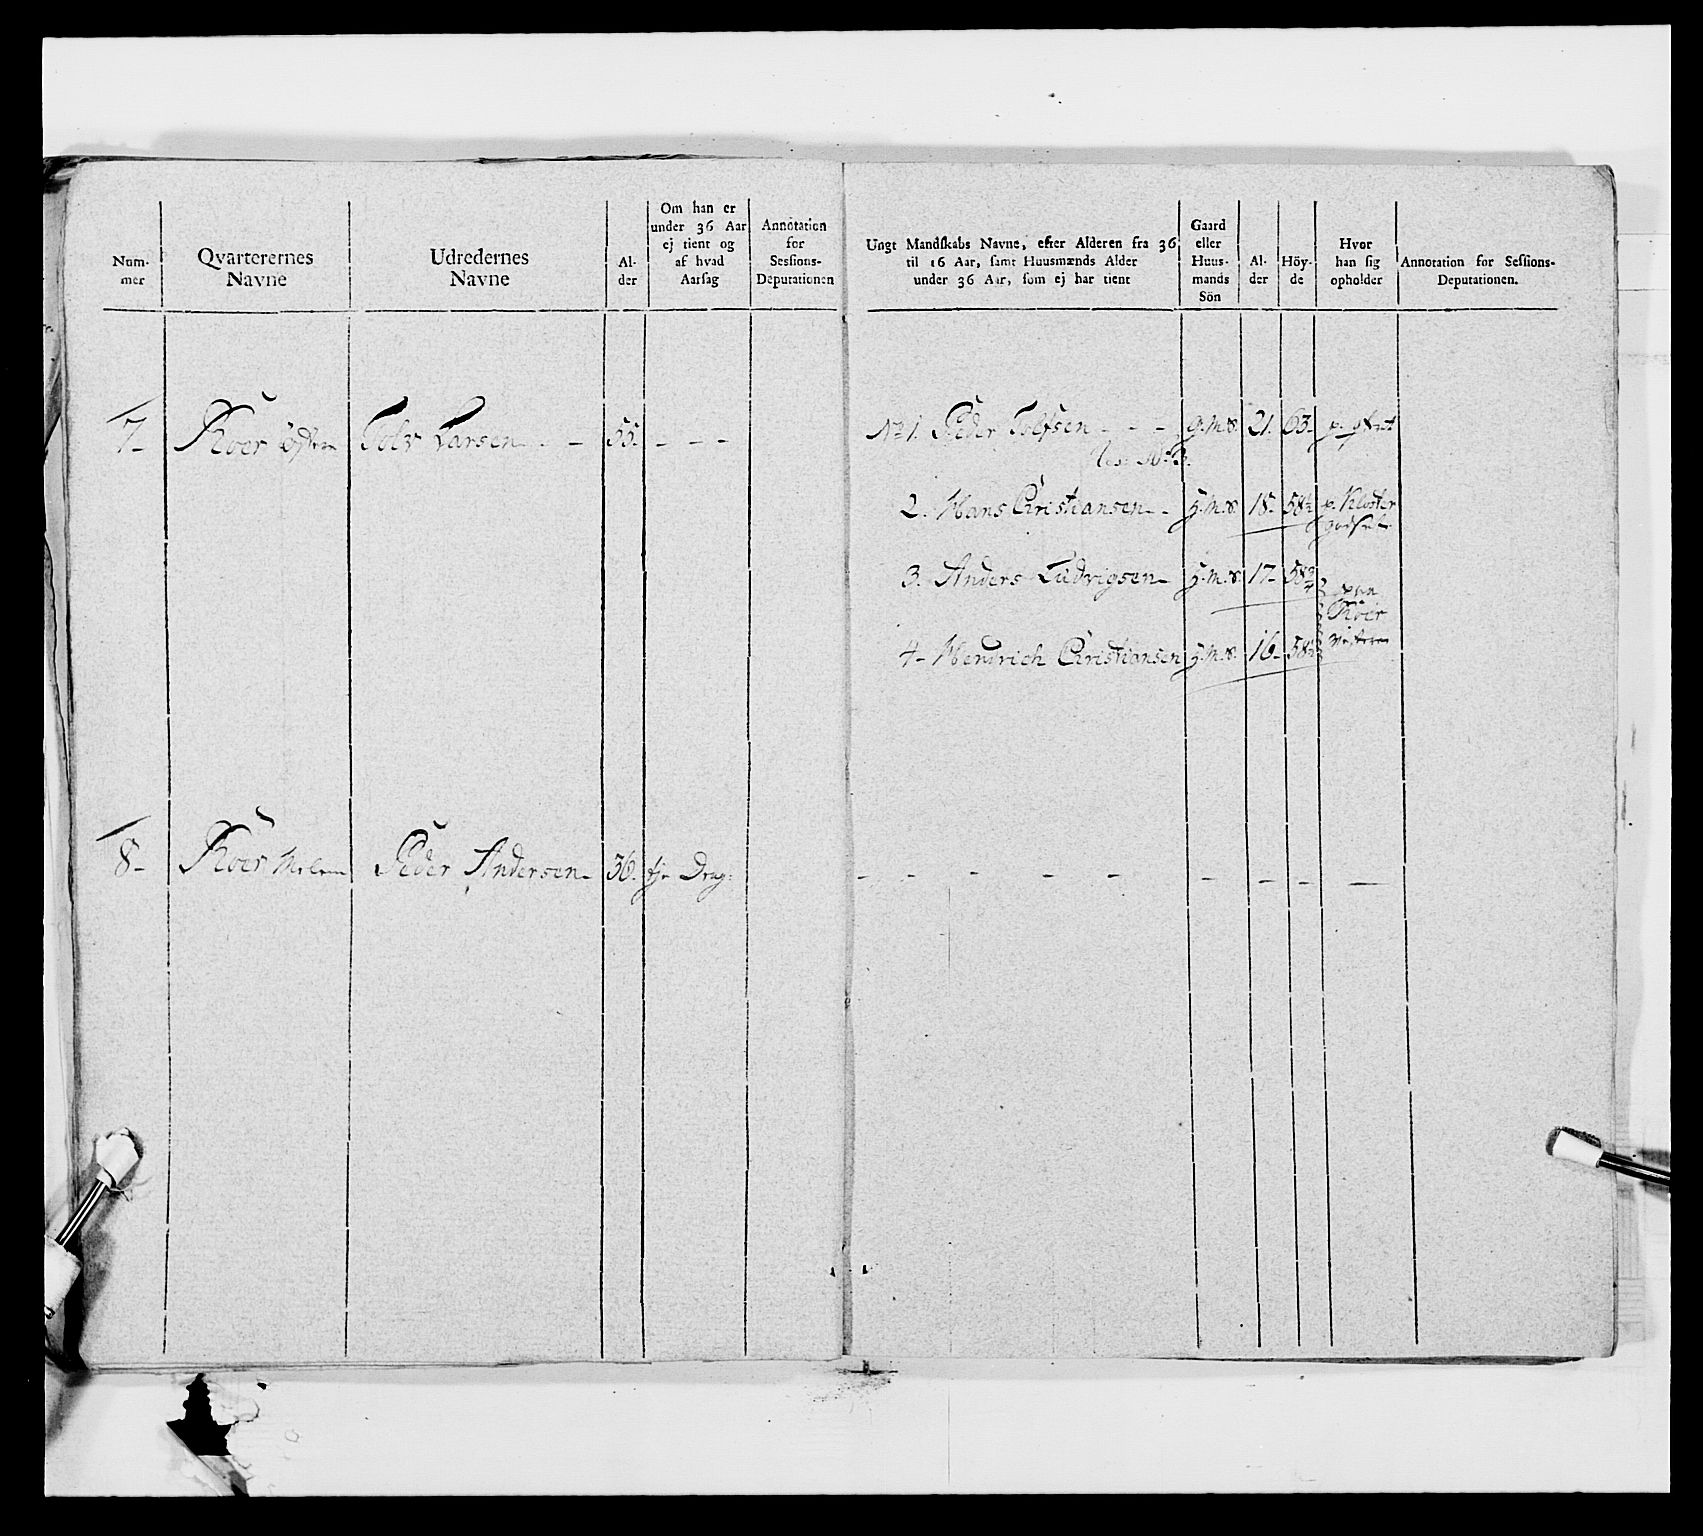 Num-
mer
Qvarterernes
Navne
Udredernes
Navne
Al-
der
Om han er
under 36 Aar
ej tient og
af hvad
Aarsag
Annotation
for
Sessions-
Deputationen
Ungt Mandskabs Navne, efter Alderen fra 36
til 16 Aar, samt Huusmænds Alder
under 36 Aar, som ej har tient
Gaard
eller
Huus-
mands
Sön
Al-
der
Höy-
de
Hvor
han sig
opholder
Annotation for Sessions-
Deputationen.
7- Roer østre Tolv Larsen - - 55. - - -
No 1. Peder Tolfsen - - - g.m.s. 21. 63-
2. Hans Christiansen - - h.m.s. 18- 58½ p. Kloster
godset
3. Anders Ludvigsen - h.m.s. 17- 58¾
Roer
4- Hendrich Christiansen h.m.s. 16- 58½
8- Roer Melem Peder Andersen - 36. tj. Drag:
- - - - - - - - -